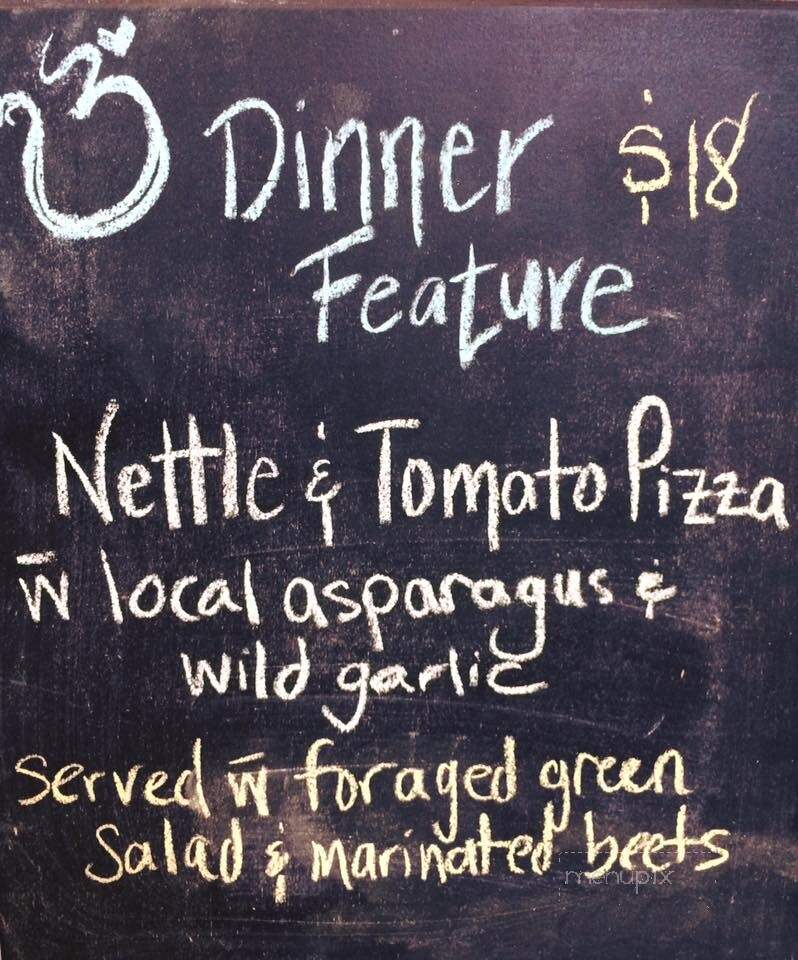 Dinner $18
Feature
Nettle & Tomato Pizza
w̄ local asparagus &
wild garlic
served w̄ foraged green
salad & marinated beets
menupix